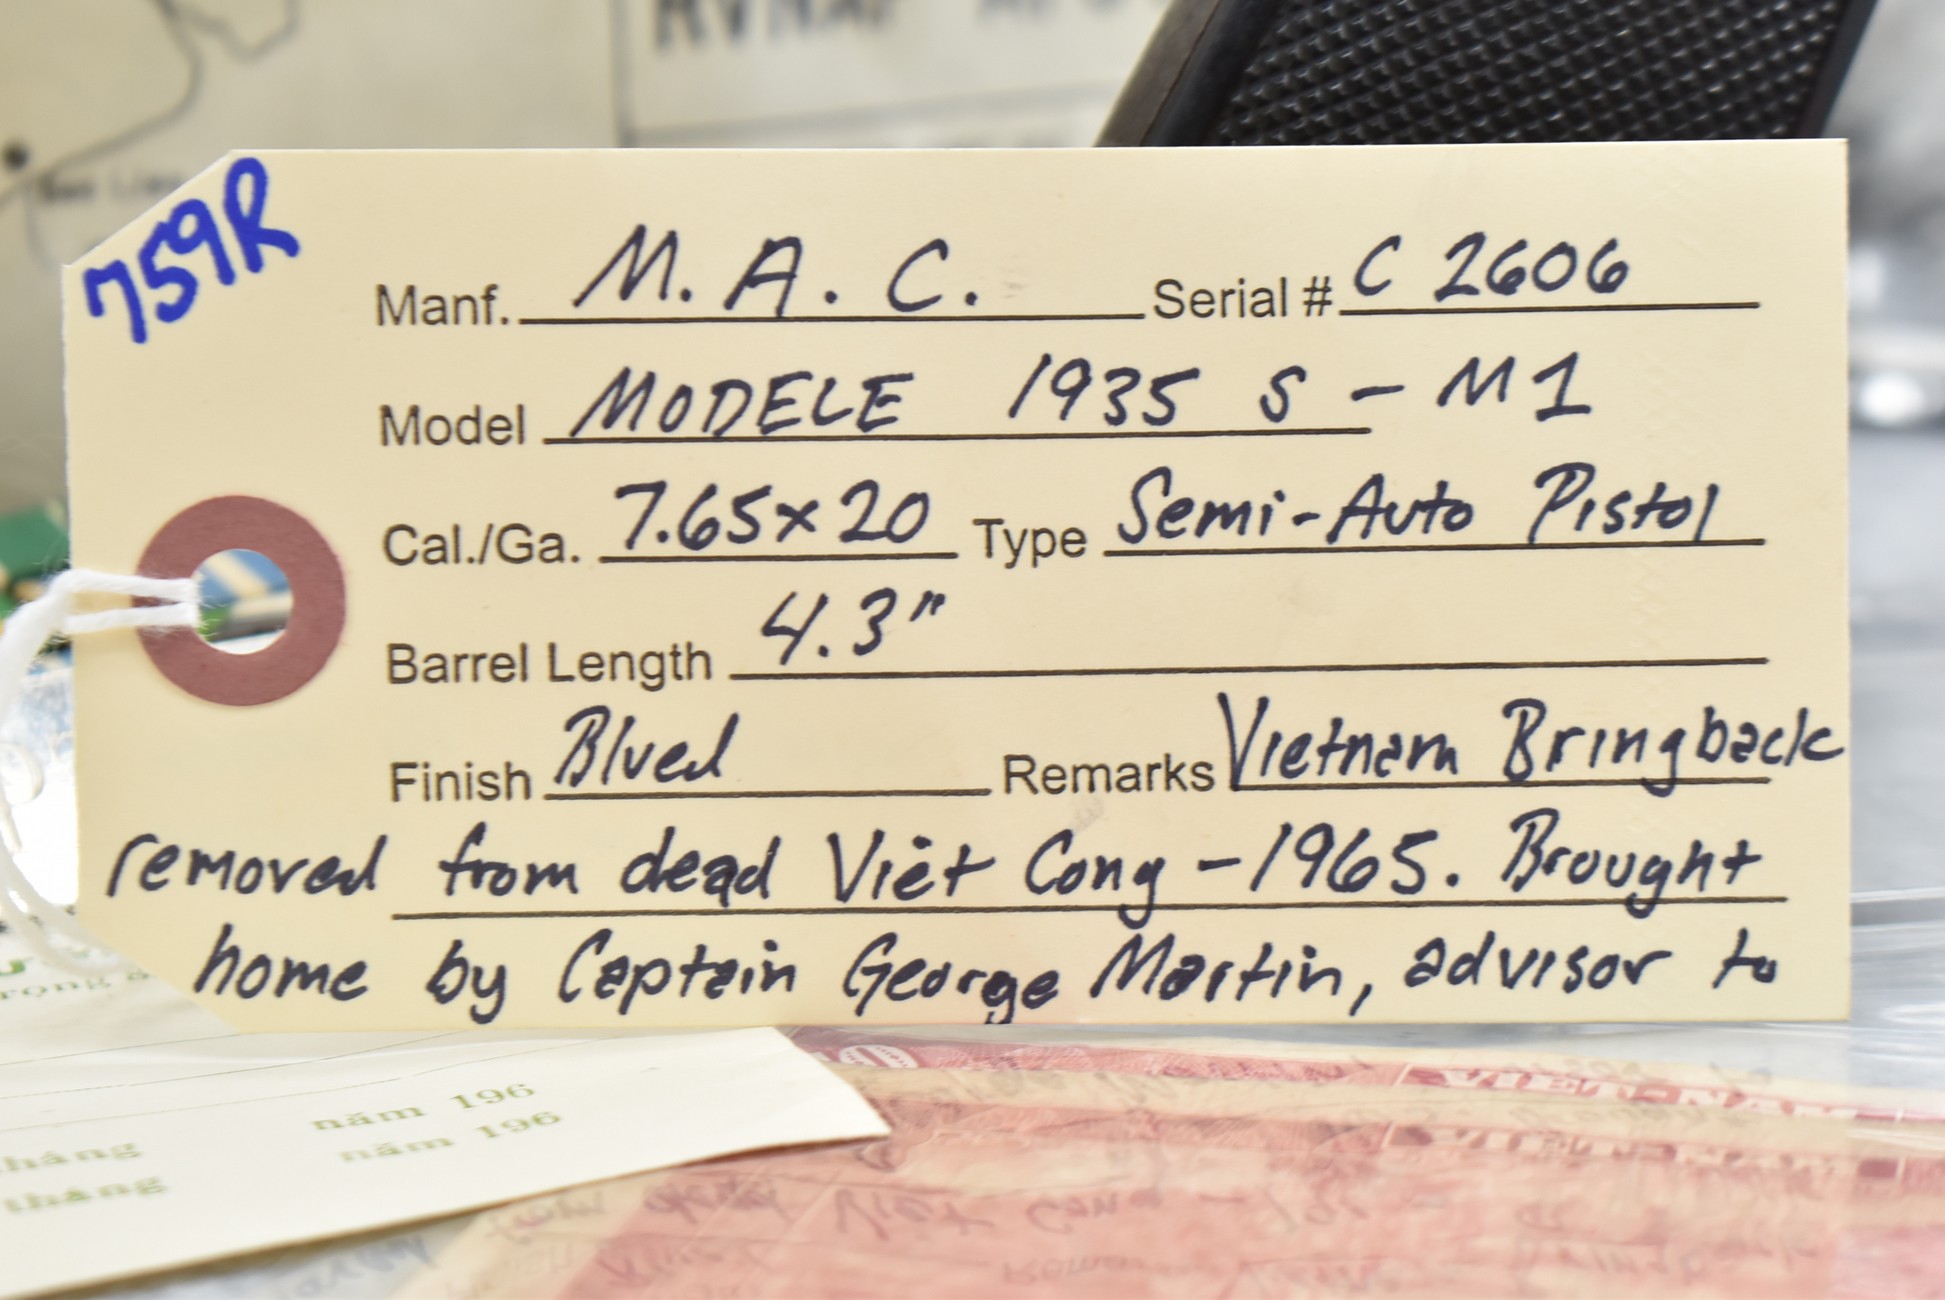 RVNAF
759R
Manf. M. A. C. Serial # C 2606
Model MODELE 1935 S - M1
Cal./Ga. 7.65x20 Type Semi-Auto Pistol
Barrel Length 4.3"
Finish Blued Remarks Vietnam Bringback
removed from dead Viet Cong - 1965. Brought
home by Captain George Martin, advisor to
năm 196
năm 196
tháng
tháng
VIET-NAM
VIET-NAM